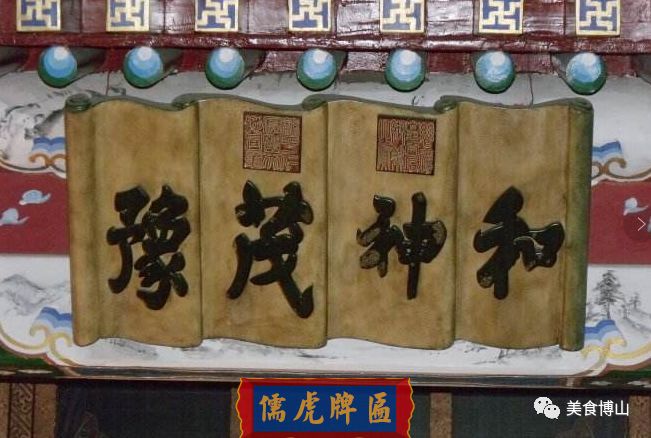 和神茂豫
儒虎牌匾
美食博山